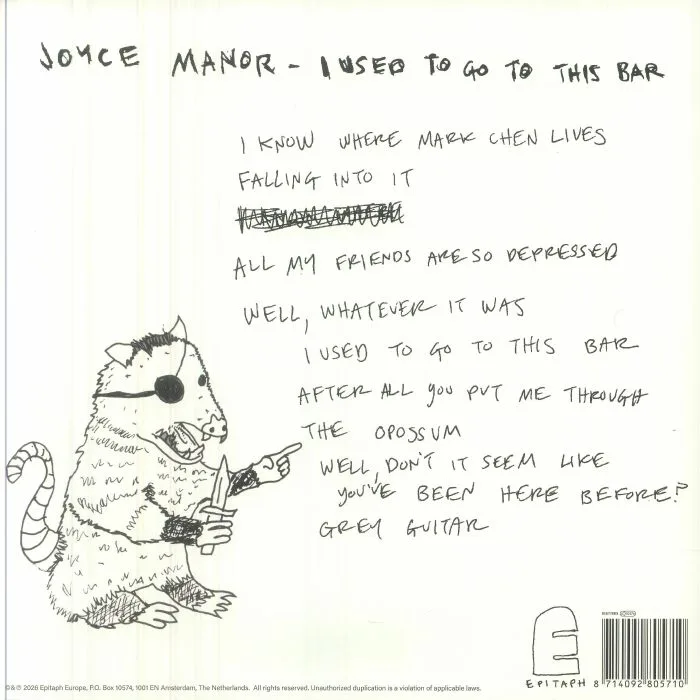 JOYCE MANOR - I USED TO GO TO THIS BAR
I KNOW WHERE MARK CHEN LIVES
FALLING INTO IT
ALL MY FRIENDS ARE SO DEPRESSED
WELL, WHATEVER IT WAS
I USED TO GO TO THIS BAR
AFTER ALL YOU PUT ME THROUGH
THE OPOSSUM
WELL, DON'T IT SEEM LIKE
YOU'VE BEEN HERE BEFORE?
GREY GUITAR
E
EPITAPH
8 714092 805710
℗&© 2026 Epitaph Europe, P.O. Box 10574, 1001 EN Amsterdam, The Netherlands. All rights reserved. Unauthorized duplication is a violation of applicable laws.